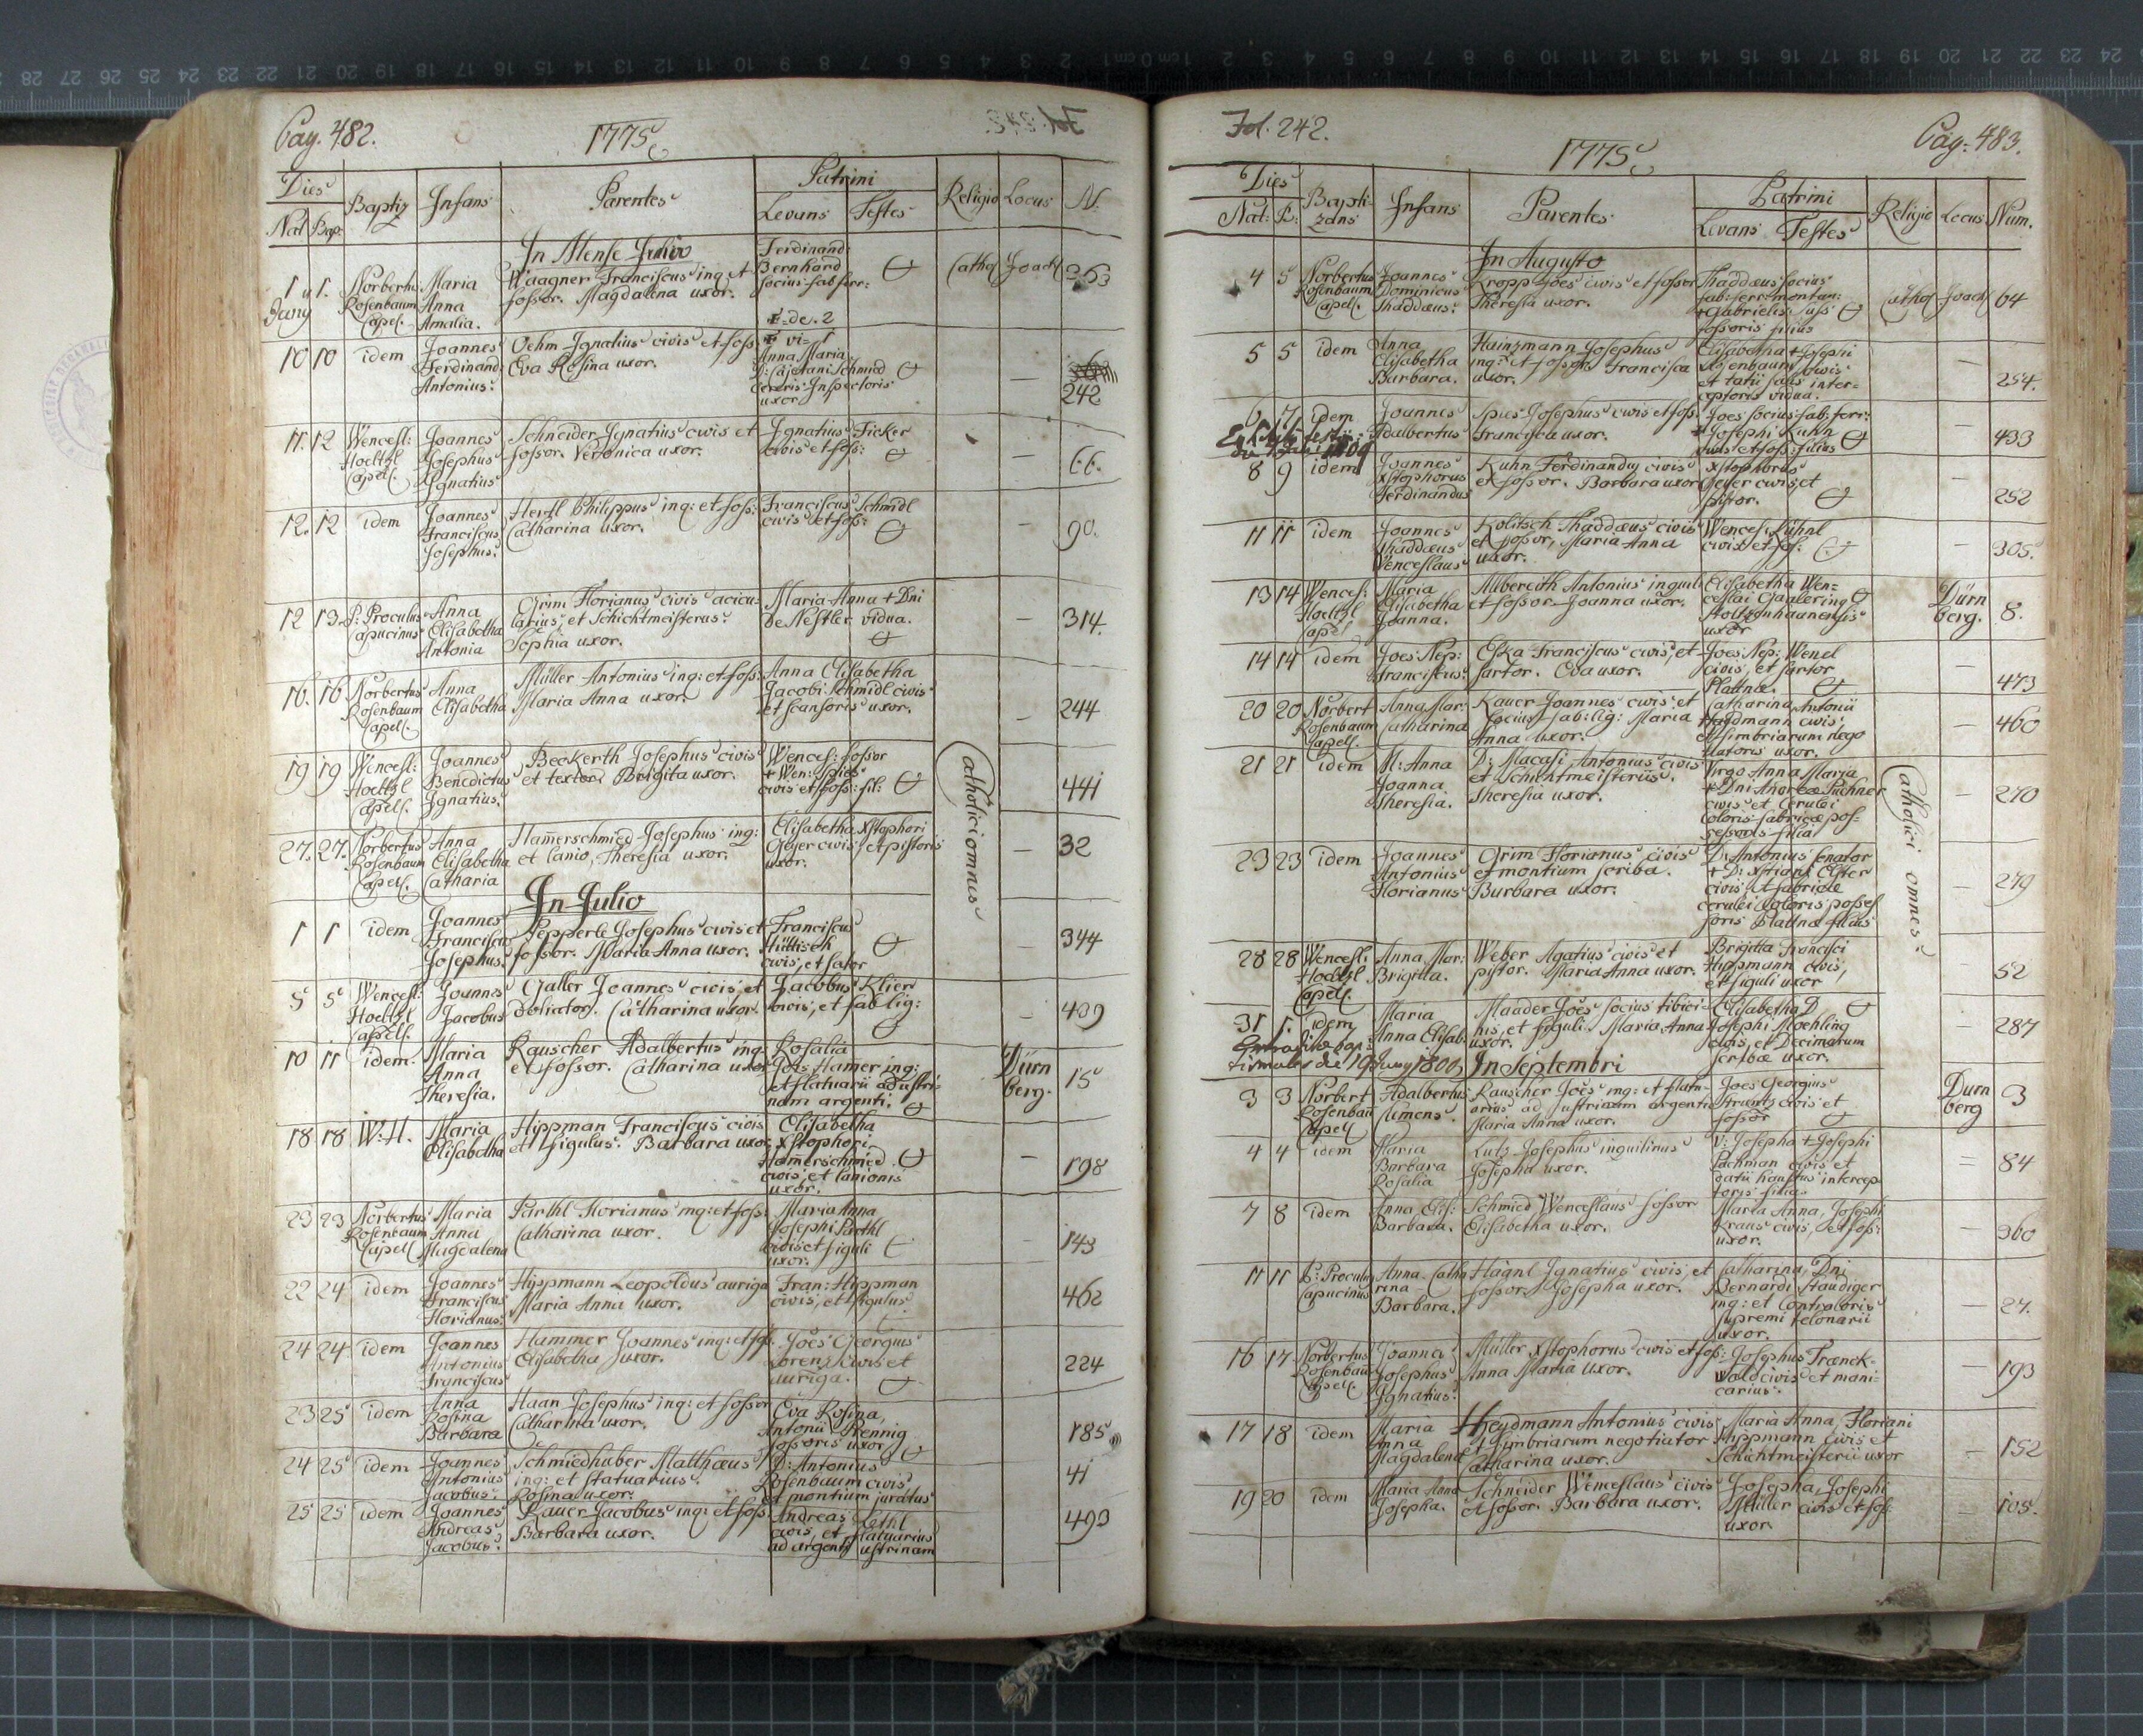 Pag. 482.
1775
Dies
Nat Bap:
Baptiz
Infans
Parentes
Patrini
Levans
Testes
Religio
Locus
N:
In Mense Junio
1 1. Norbert: Maria Waagner Franciscus inq: et Ferdinand: Cathol Joach 363
Rosenbaum Anna fossor. Magdalena uxor. Bernhard
Capel. Amalia. socius fab ferr:
10 10 idem Joannes Oehm Ignatius civis et foss: Anna Maria
Ferdinand: Eva Rosina uxor. D: Cajetani Schmied
Antonius. Inspectoris
uxor 242
11. 12 Wencesl: Joannes Schneider Ignatius civis et Ignatius Ficker
Hoeltzl Josephus fossor. Veronica uxor. civis et foss: 66.
Capell. Ignatius
12. 12 idem Joannes Hertl Philippus inq: et foss: Franciscus Schmidl
Franciscus Catharina uxor. civis et foss: 90.
Josephus.
12 13 P: Proculus Anna Grim Florianus civis acicu= Maria Anna + Dni
Capucinus Elisabetha larius, et Schichtmeisterus. de Nestler vidua. 314.
Antonia Sophia uxor.
16. 16 Norbertus Anna Müller Antonius inq: et foss: Anna Elisabetha
Rosenbaum Elisabetha Maria Anna uxor. Jacobi Schmidl civis
Capell. et scansoris uxor. 244
19 19 Wencesl: Joannes Beckerth Josephus civis Wencesl: fossor
Hoeltzl Benedictus et textor Brigita uxor. + Wen: Spies
Capell. Ignatius. civis et foss: fil: 441
27. 27. Norbertus Anna Hamerschmied Josephus inq: Elisabetha Xstophori
Rosenbaum Elisabetha et lanio, Theresia uxor. Geyer civis et pistoris
Capell. Catharia uxor. 32
Catholici omnes
In Julio
1 1 idem Joannes Pepperle Josephus civis et Franciscus
Francisco fossor. Maria Anna uxor. Hüttisch
Josephus. civis, et sator 344
5 5 Wencesl: Joannes Galler Joannes civis et Jacobus Klier
Hoeltzl Jacobus doliator. Catharina uxor. civis, et fab lig: 409
Capell.
10 11 idem. Maria Rauscher Adalbertus inq: Rosalia Dürn
Anna et fossor. Catharina uxor Jois Hamer inq: berg. 15
Theresia. et statuarii ad ustri=
nam argenti.
18 18 W: H. Maria Hippman Franciscus civis Elisabetha
Elisabetha et figulus. Barbara uxor. Xstophori
Hamerschmied
civis, et lanionis 198
uxor.
23 23 Norbertus Maria Parthl Florianus inq: et foss: Maria Anna
Rosenbaum Anna Catharina uxor. Josephi Parthl
Capell Magdalena civis et figuli
uxor. 143
22 24 idem Joannes Hippmann Leopoldus auriga Fran: Hippman
Franciscus Maria Anna uxor. civis, et figulus 462
Florianus.
24 24 idem Joannes Hammer Joannes inq: et foss: Joes Georgius
Antonius Elisabetha uxor. Lorenz civis et
Franciscus auriga. 224
23 25 idem Anna Haan Josephus inq: et fossor Eva Rosina,
Rosina Catharina uxor. Antonii Prennig
Barbara fossoris uxor 185
24 25 idem Joannes Schmiedhuber Matthæus D: Antonius
Antonius inq: et statuarius. Rosenbaum civis 41
Jacobus. Rosina uxor. et montium juratus
25 25 idem Joannes Kauer Jacobus inq: et foss: Andreas
Andreas Barbara uxor. civis, et statuarius 493
Jacobus. ad argenti ustrinam
Fol. 242.
1775
Pag: 483.
Dies
Nat: B:
Bapti=
zans
Infans
Parentes
Patrini
Levans
Testes
Religio
Locus
Num.
In Augusto
4 5 Norbertus Joannes Kropp Joes civis et fossor Thaddæus socius
Rosenbaum Dominicus Theresia uxor. fab: ferr: montan: Cathol Joach 64
Capell. Thaddæus. Gabrielis
fossoris filius
5 5 idem Anna Hainzmann Josephus Elisabetha + Josephi
Elisabetha inq: et fossor Francisca Rosenbaum civis
Barbara. uxor. inter=
ceptoris vidua. 254.
6 7 idem Joannes Spies Josephus civis et foss: Joes socius fab: ferr:
Adalbertus Francisca uxor. Josephi Kuhn
civis et foss: filius 433
8 9 idem Joannes Kuhn Ferdinandus civis Xstophorus
Xstophorus et fossor. Barbara uxor Geyer civis et
Ferdinandus pistor. 252
11 11 idem Joannes Kolitsch Thaddæus civis Wences: Kühnl
Thaddæus et fossor, Maria Anna civis et fos: 305.
Wenceslaus uxor.
13 14 Wences: Maria Albereith Antonius inquil: Elisabetha Wen= Dürn
Hoeltzl Elisabetha et fossor Joanna uxor. ceslai berg. 8.
Capel. Joanna. uxor
14 14 idem Joes Nep: Eska Franciscus civis, et Joes Nep: Wenel
Franciscus. sartor. Eva uxor. civis, et sartor
Plattnæ. 473
20 20 Norbert Anna Mar: Kauer Joannes civis et Catharina Antonii
Rosenbaum Catharina socius fab: lig: Maria Haydmann civis, 460
Capell. Anna uxor. et fimbriarum nego
tiatoris uxor.
21 21 idem M: Anna D: Macasi Antonius civis Virgo Anna Maria
Joanna et Schichtmeisterus. + Dni Andreæ Puchner
Theresia. Theresia uxor. civis et Cerulei 270
Coloris fabricæ pos=
sessoris filia
23 23 idem Joannes Grim Florianus civis D: Antonius Senator
Antonius et montium scriba. + D: Xstiani Elster
Florianus Barbara uxor. civis et fabricæ 279
cerulei Coloris posses
soris Plattnæ filius
Catholici omnes.
28 28 Wencesl: Anna Mar: Weber Agatius civis et Brigitta Francisci
Hoeltzl Brigitta. pistor. Maria Anna uxor. Hippmann civis, 52
Capell. et figuli uxor
31 1. idem Maria Maader Joes socius tibici= Elisabetha D
Anna Elisab: nis, et figuli. Maria Anna Josephi Moehling 287
uxor. civis, et Decimarum
scribæ uxor.
In Septembri
3 3 Norbert Adalbertus Rauscher Joes inq: et statu= Joes Georgius Durn
Rosenbau Clemens. arius ad ustrinam argenti civis et berg 3
Capell Maria Anna uxor. fossor
4 4 idem Maria Lutz Josephus inquilinus V: Josepha + Josephi
Barbara Josepha uxor. Pachman civis et 84
Rosalia intercep
toris filia
7 8 idem Anna Elis: Schmied Wenceslaus fossor Maria Anna, Josephi
Barbara. Elisabetha uxor. Kraus civis, et foss: 360
uxor.
11 11 P: Proculus Anna Catha Hagnl Ignatius civis, et Catharina, Dni
Capucinus rina fossor. Josepha uxor. Bernardi Staudiger
Barbara. inq: et Contraloris 27.
supremi telonarii
uxor.
16 17 Norbertus Joanna Müller Xstophorus civis et fos: Josephus Frænck=
Rosenbau Josephus Anna Maria uxor. wald civis et mani= 193
Capell. Ignatius. carius.
17 18 idem Maria Heydmann Antonius civis Maria Anna, Floriani
Anna et fimbriarum negotiator Hippmann civis et 152
Magdalena Catharina uxor. Schichtmeisterii uxor
19 20 idem Maria Anna Schneider Wenceslaus civis Josepha, Josephi
Josepha. et fossor. Barbara uxor. Müller civis et fos: 105.
uxor.